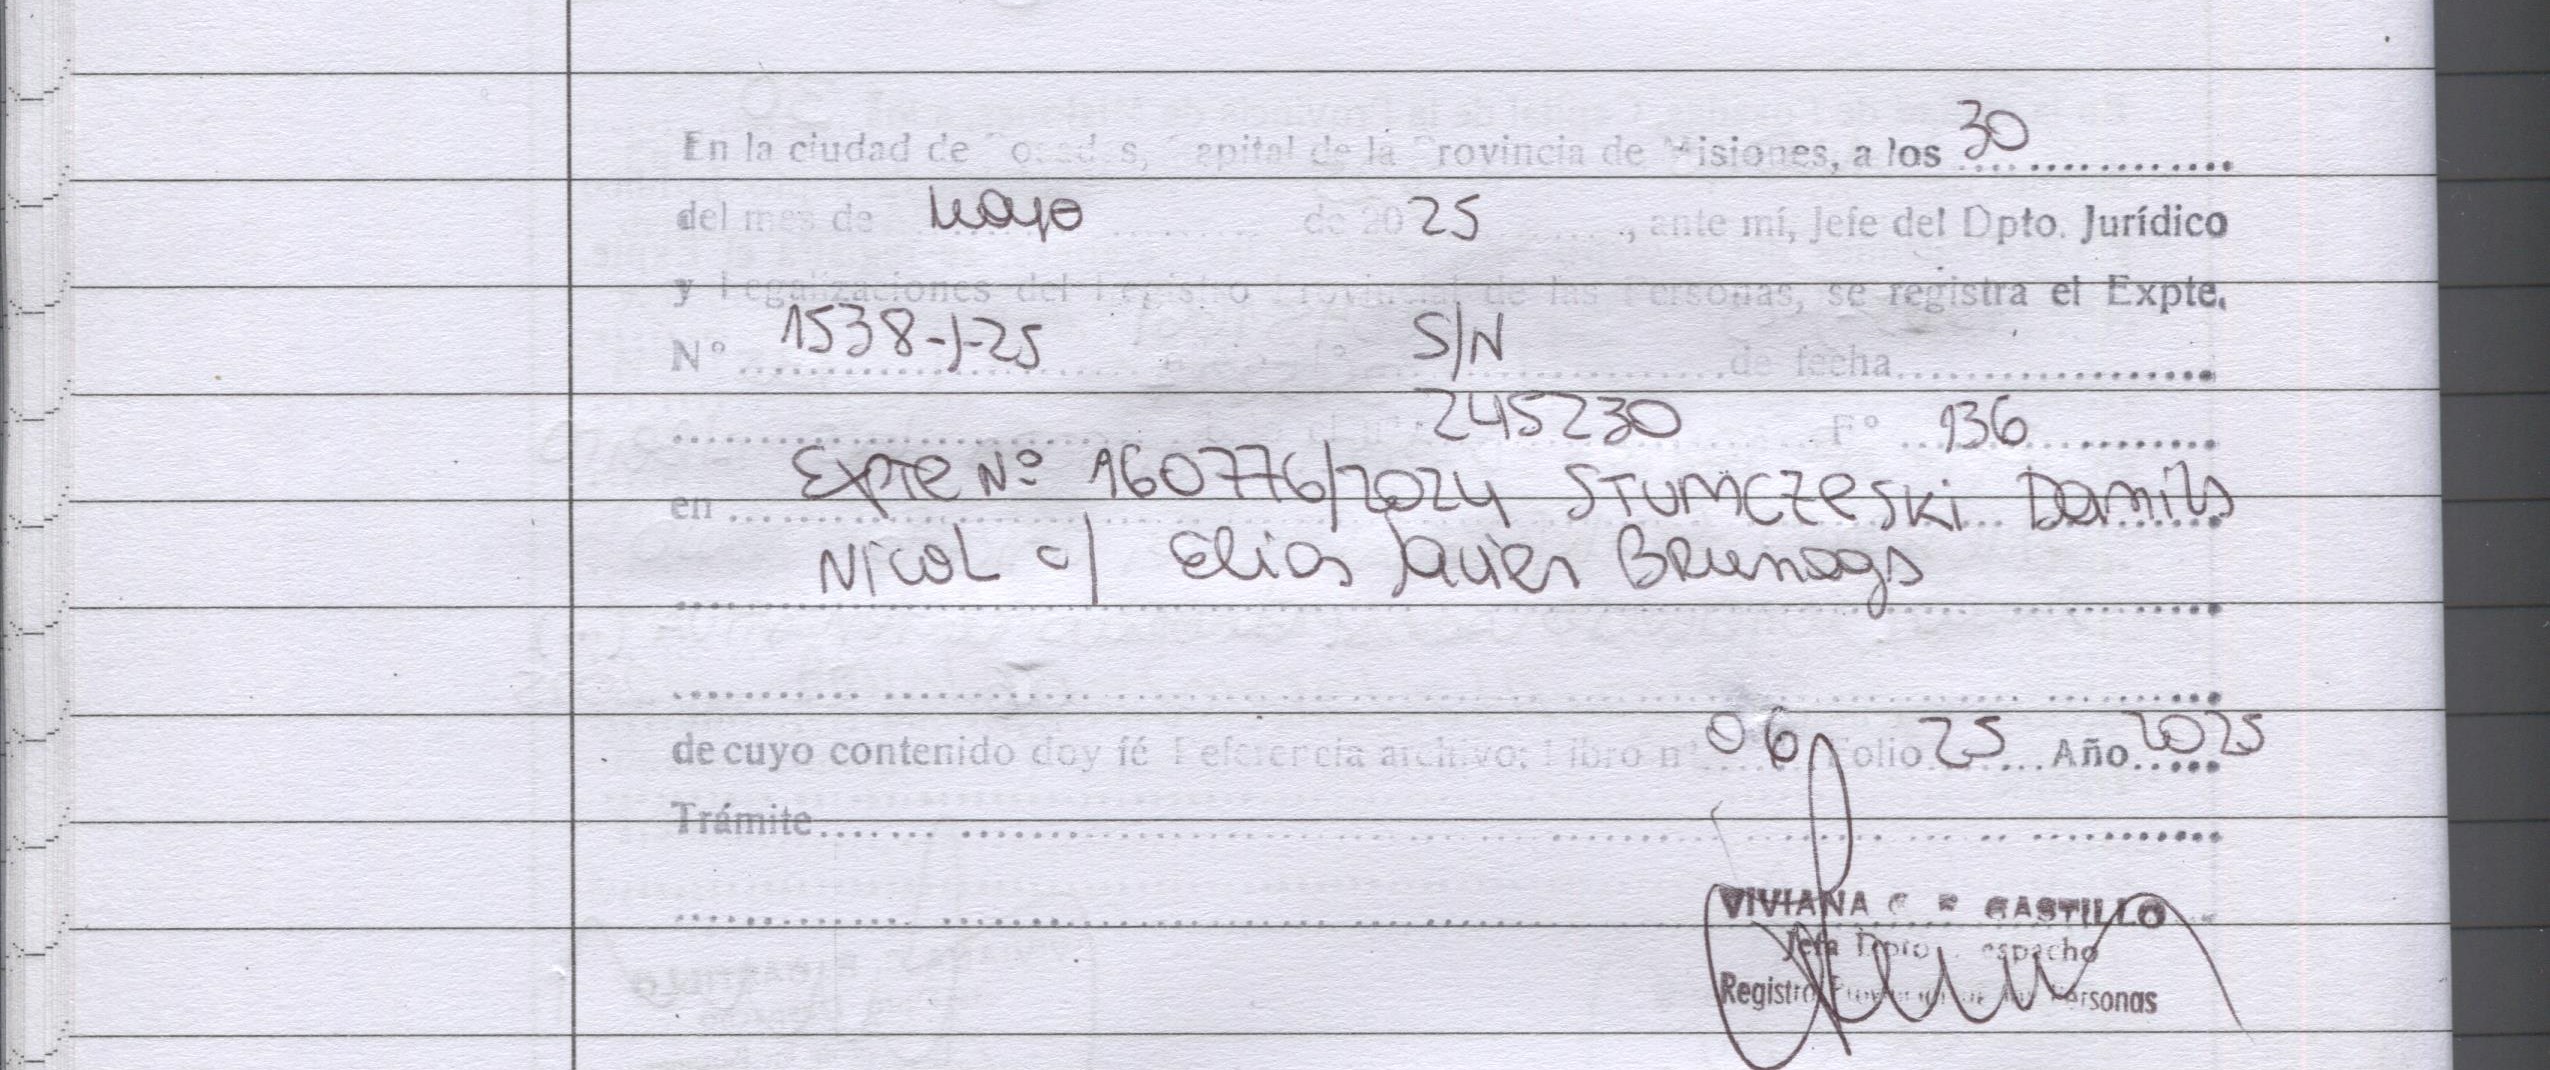 En la ciudad de Posadas, Capital de la Provincia de Misiones, a los 30
del mes de mayo de 2025, ante mí, Jefe del Dpto. Jurídico
y Legalizaciones del Registro Provincial de las Personas, se registra el Expte.
N° 1538-J-25 S/N de fecha
245230 F° 136
en Expte Nº 160776/2024 STUMCZESKI Damila
NicoL c/ Elias Javier Brunaga
de cuyo contenido doy fé Referencia archivo: Libro nº 06 Folio 25 Año 2025
Trámite
VIVIANA CASTILLO
Jefa Dpto. Despacho
Registro Provincial de las Personas